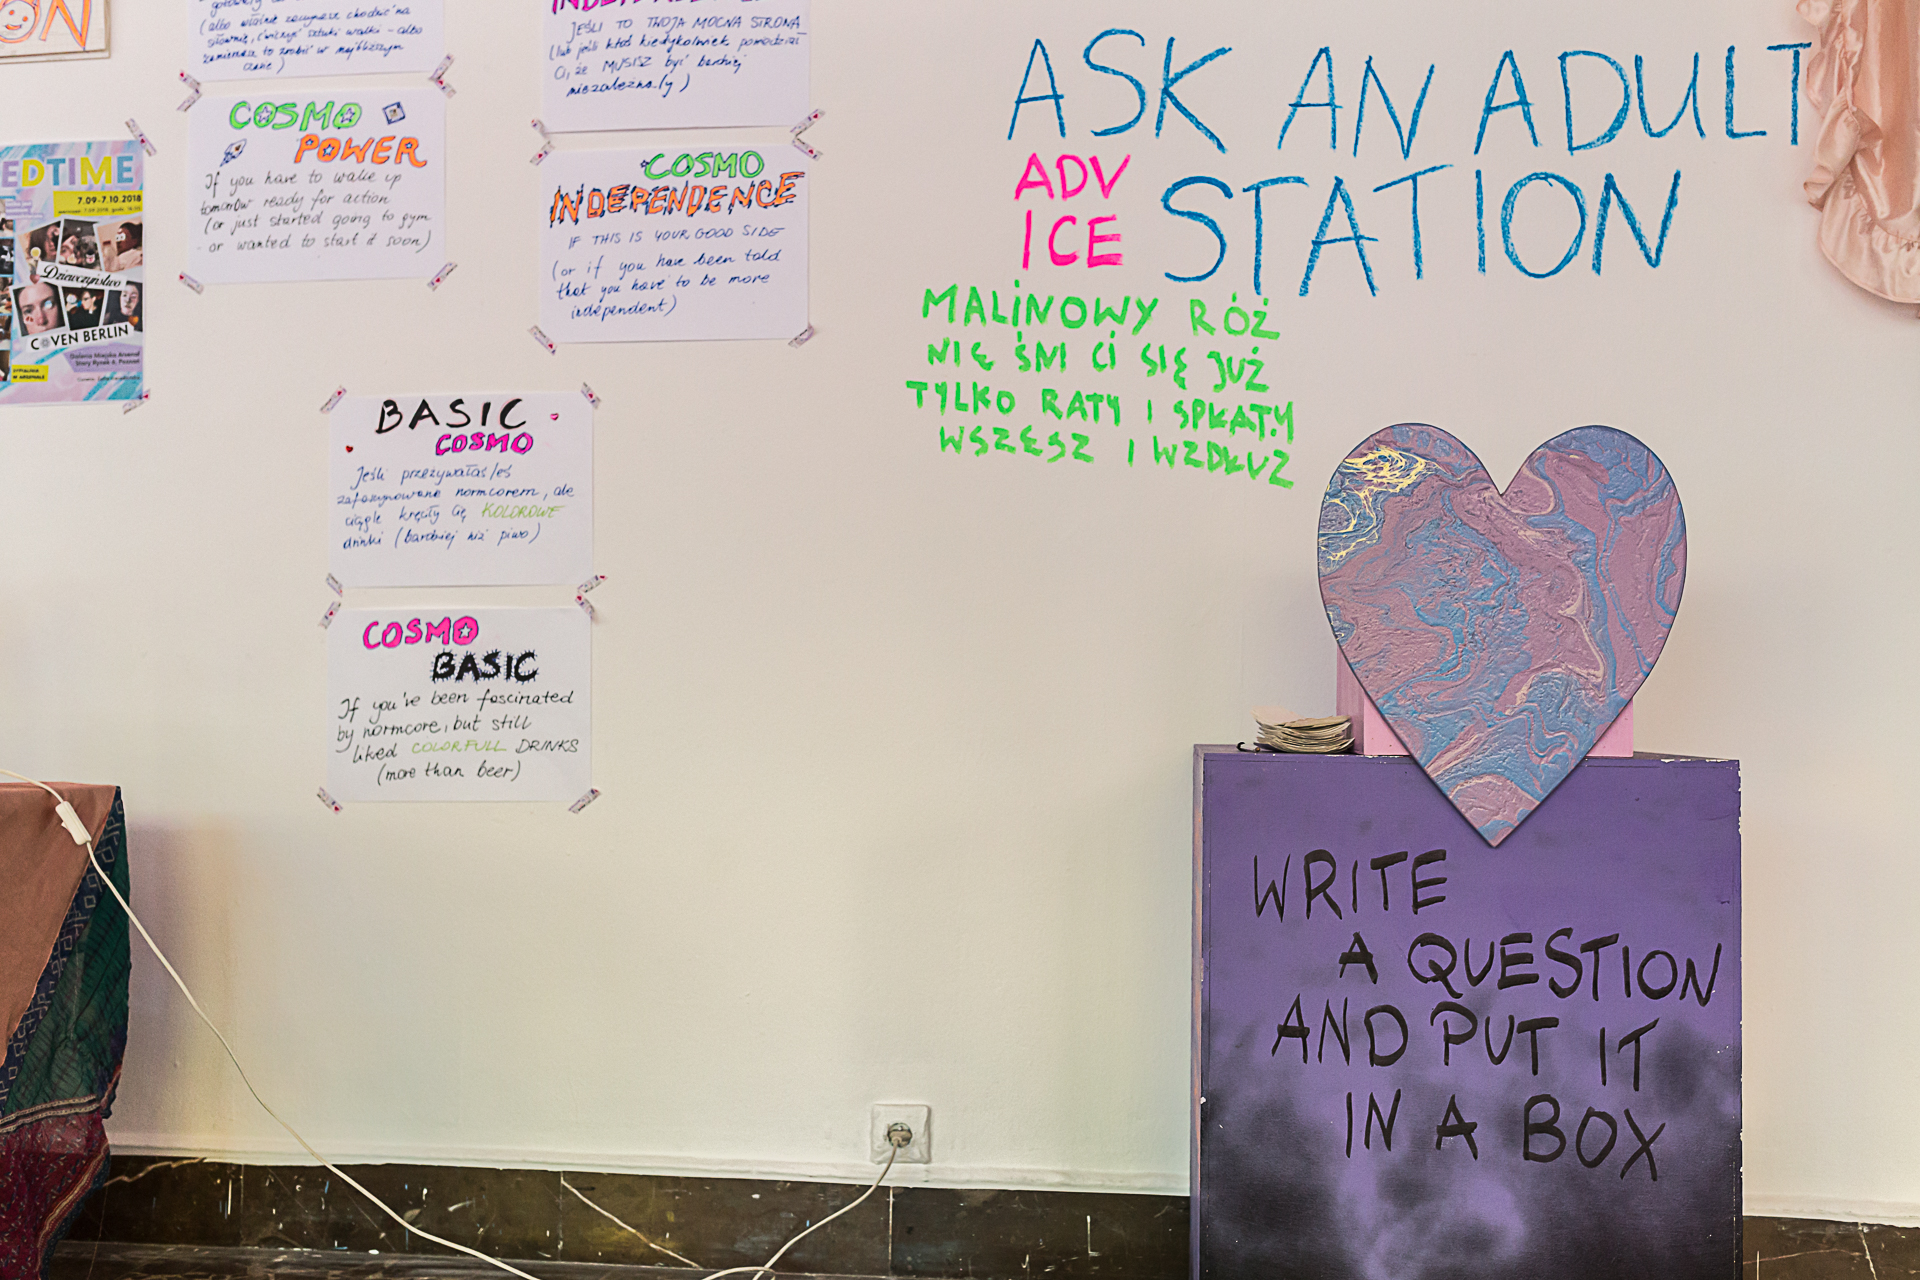 ON
(albo właśnie zaczynasz chodzić na
siłownię, ćwiczyć sztuki walki - albo
zamierzasz to zrobić w najbliższym
czasie)
COSMO
POWER
If you have to wake up
tomorrow ready for action
(or just started going to gym
or wanted to start it soon)
JEŚLI TO TWOJA MOCNA STRONA
(lub jeśli ktoś kiedykolwiek powiedział
Ci, że MUSISZ być bardziej
niezależna/y)
COSMO
INDEPENDENCE
IF THIS IS YOUR GOOD SIDE
(or if you have been told
that you have to be more
independent)
EDTIME
7.09-7.10.2018
Dziewczyństwo
COVEN BERLIN
Galeria Miejska Arsenał
Stary Rynek 6, Poznań
BASIC
COSMO
Jeśli przeżywałaś/eś
zafascynowanie normcorem, ale
ciągle kręciły Cię KOLOROWE
drinki (bardziej niż piwo)
COSMO
BASIC
If you've been fascinated
by normcore, but still
liked COLORFULL DRINKS
(more than beer)
ASK AN ADULT
ADV
ICE
STATION
MALINOWY RÓŻ
NIE ŚNI CI SIĘ JUŻ
TYLKO RATY I SPŁATY
WSZESZ I WZDŁUŻ
WRITE
A QUESTION
AND PUT IT
IN A BOX